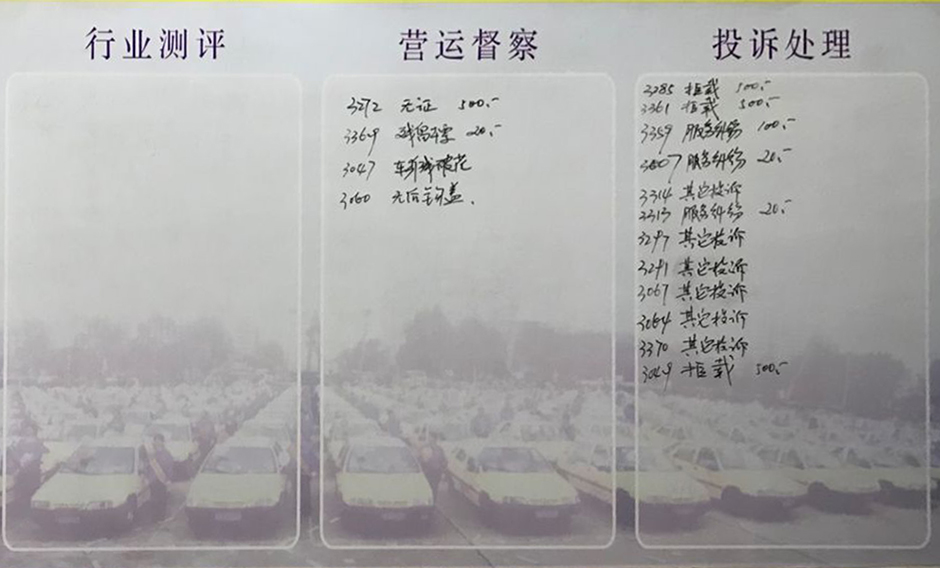 行业测评
营运督察
3272 无证 500.-
3369 残留车票 20.-
3047 车身残破花
3060 无后轮盖.
投诉处理
3285 拒载 500.-
3361 拒载 500.-
3359 服务纠纷 100.-
3607 服务纠纷 20.-
3314 其它投诉
3313 服务纠纷 20.-
3297 其它投诉
3291 其它投诉
3067 其它投诉
3064 其它投诉
3370 其它投诉
3049 拒载 500.-